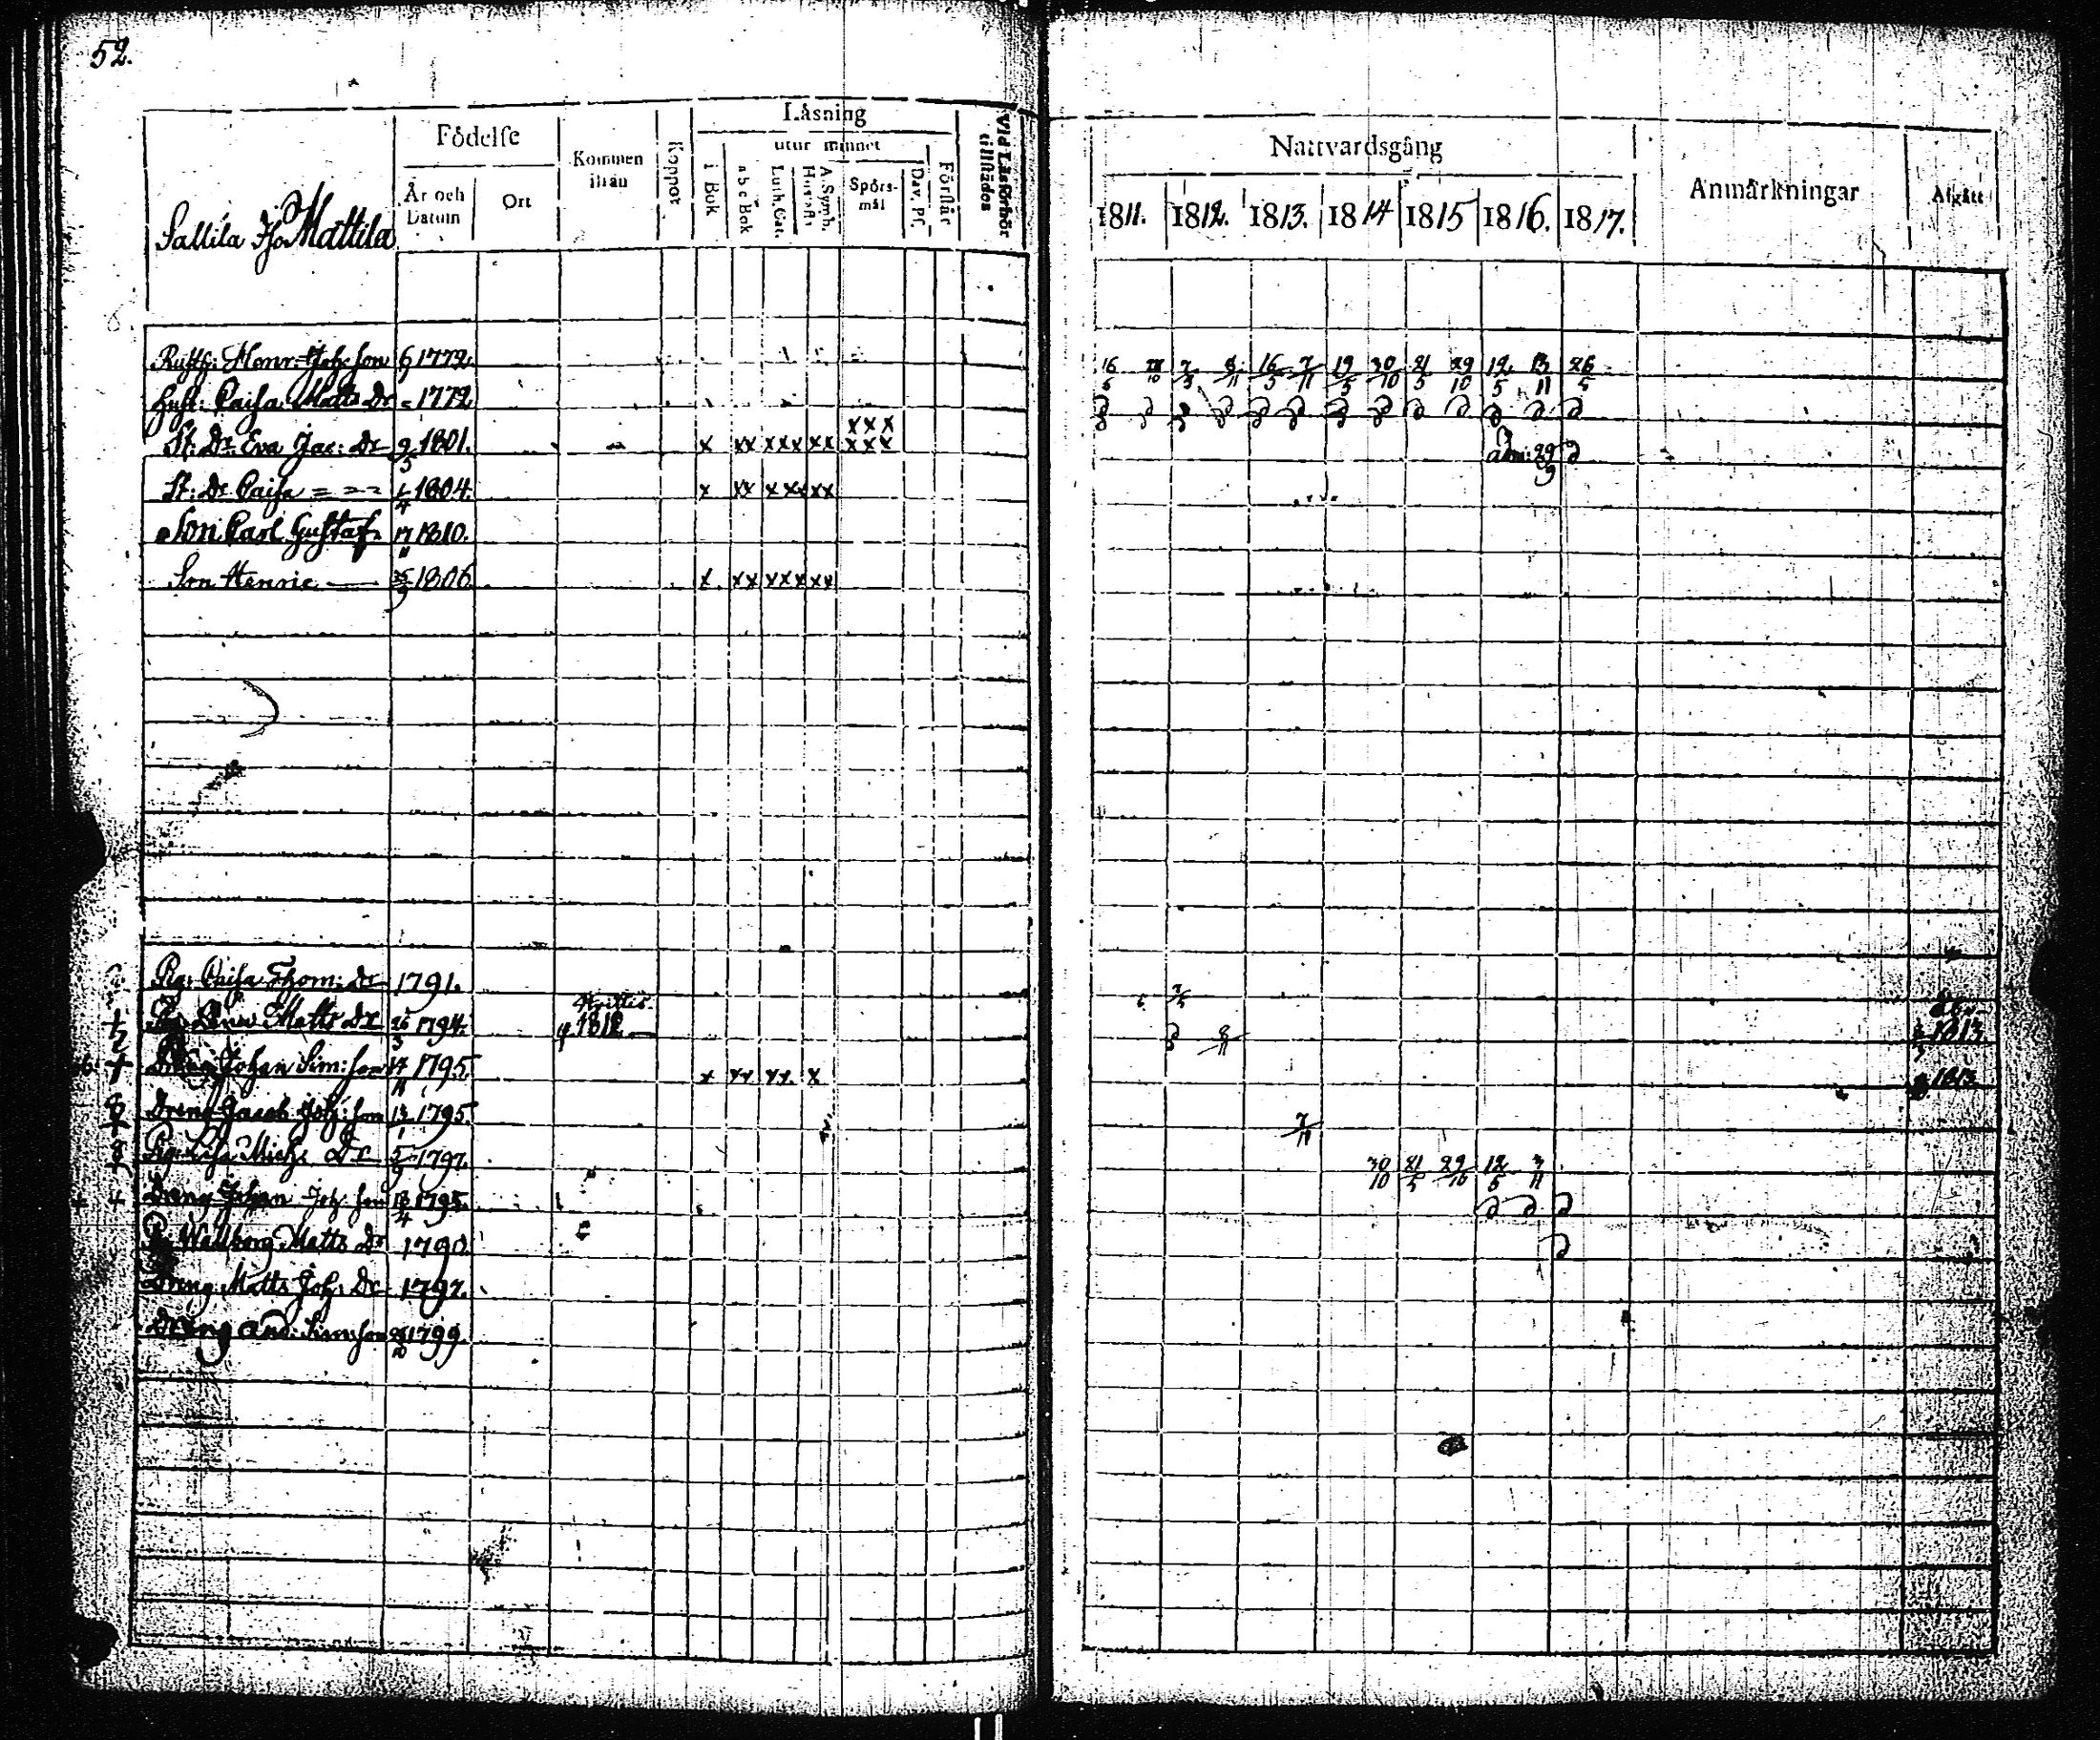 52.
Födelse
Kommen ifrån
Koppor
Läsning
utur minnet
Vid Läsförhör tillstädes
År och Datum
Ort
i Bok
abc Bok
Luth. Cat.
A. Symb. Hustafl.
Spörs-mål
Dav. Ps.
Förstår
Sallila Mattila
Nattvardsgång
Anmärkningar
Afgått
1811. 1812. 1813. 1814 1815 1816. 1817.
Rusth: Henr: Joh: son 1772. 16/5 7/5 8/11 16/5 7/11 19/5 30/10 21/5 29/10 12/5 13/11 26/5
Hust: Caisa Matts Dr 1772
St: Dr: Eva Jac: Dr 9/5 1801. x xx xxx xx xxx xxx adm: 29/9
St: Dr Caisa 1/4 1804. x xx xxx xx
Son Carl Gustaf 17/11 1810.
Son Henric 1806 x xx xxx xx
Pig: Caisa Thom: Dr 1791. 7/5
Lena Matts Dr 1794. 1812 8/11 1813
Dreng Johan Sim: son 1795. x xx xx x 1813
Dreng Jacob Joh: son 13/1 1795. 7/11
Pig: Lisa Mich: Dr 5/9 1797. 30/10 21/5 29/10 12/5 3/11
Dreng Johan Joh: son 1795.
Walborg Matts Dr 1790.
Dreng Matts Joh: Dr 1797.
Dreng And: Simson 1799.